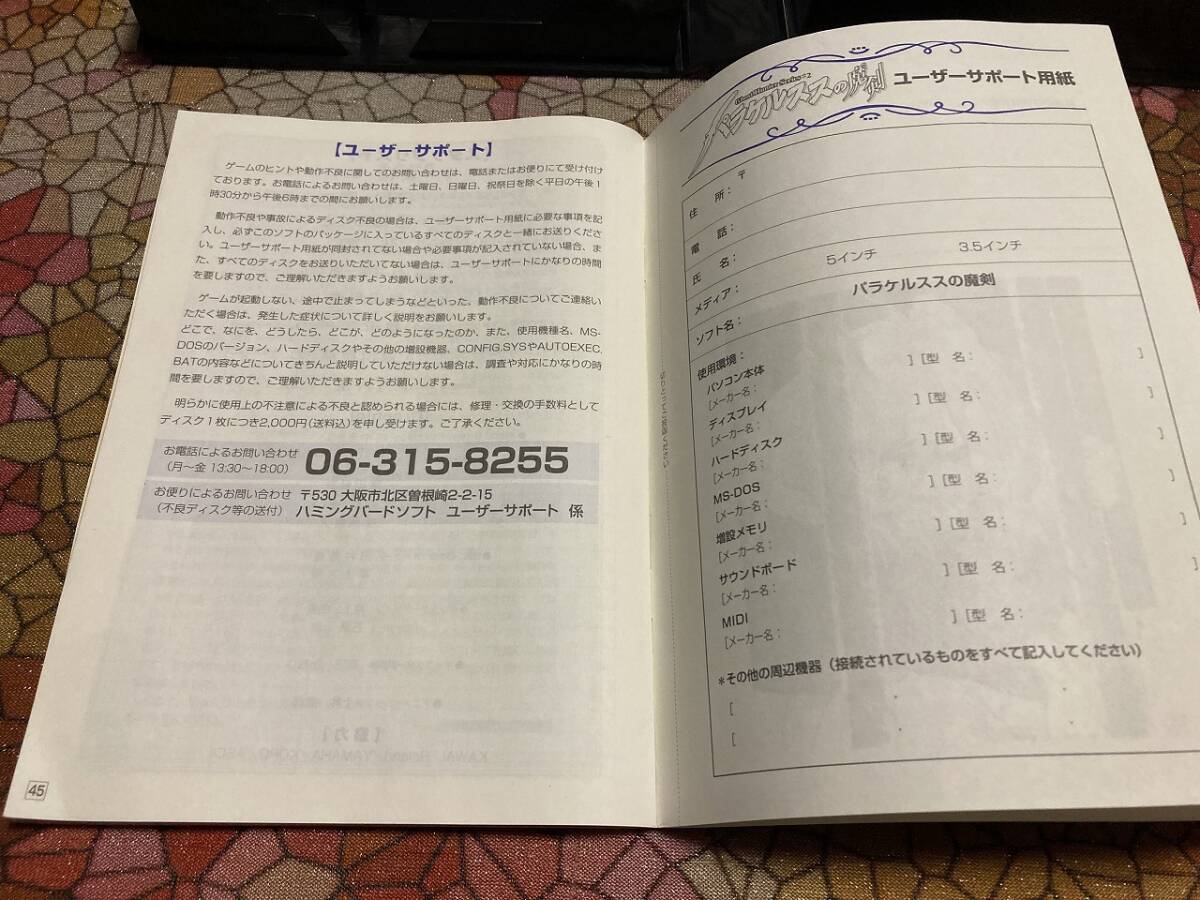 【ユーザーサポート】
ゲームのヒントや動作不良に関してのお問い合わせは、電話またはお便りにて受け付け
ております。お電話によるお問い合わせは、土曜日、日曜日、祝祭日を除く平日の午後1
時30分から午後6時までの間にお願いします。
動作不良や事故によるディスク不良の場合は、ユーザーサポート用紙に必要な事項を記
入し、必ずこのソフトのパッケージに入っているすべてのディスクと一緒にお送りくださ
い。ユーザーサポート用紙が同封されてない場合や必要事項が記入されていない場合、ま
た、すべてのディスクをお送りいただいてない場合は、ユーザーサポートにかなりの時間
を要しますので、ご理解いただきますようお願いします。
ゲームが起動しない、途中で止まってしまうなどといった、動作不良についてご連絡い
ただく場合は、発生した症状について詳しく説明をお願いします。
どこで、なにを、どうしたら、どこが、どのようになったのか、また、使用機種名、MS-
DOSのバージョン、ハードディスクやその他の増設機器、CONFIG.SYSやAUTOEXEC.
BATの内容などについてきちんと説明していただけない場合は、調査や対応にかなりの時
間を要しますので、ご理解いただきますようお願いします。
明らかに使用上の不注意による不良と認められる場合には、修理・交換の手数料として
ディスク1枚につき2,000円(送料込)を申し受けます。ご了承ください。
お電話によるお問い合わせ
(月〜金 13:30〜18:00) 06-315-8255
お便りによるお問い合わせ 〒530 大阪市北区曽根崎2-2-15
(不良ディスク等の送付) ハミングバードソフト ユーザーサポート 係
45
Ghost Hunter Series #2
パラケルススの魔剣 ユーザーサポート用紙
住 所: 〒
電 話:
氏 名:
メディア: 5インチ 3.5インチ
ソフト名: パラケルススの魔剣
使用環境:
パソコン本体
[メーカー名: ] [型 名: ]
ディスプレイ
[メーカー名: ] [型 名: ]
ハードディスク
[メーカー名: ] [型 名: ]
MS-DOS
[メーカー名: ] [型 名: ]
増設メモリ
[メーカー名: ] [型 名: ]
サウンドボード
[メーカー名: ] [型 名: ]
MIDI
[メーカー名: ] [型 名:
*その他の周辺機器(接続されているものをすべて記入してください)
[
[